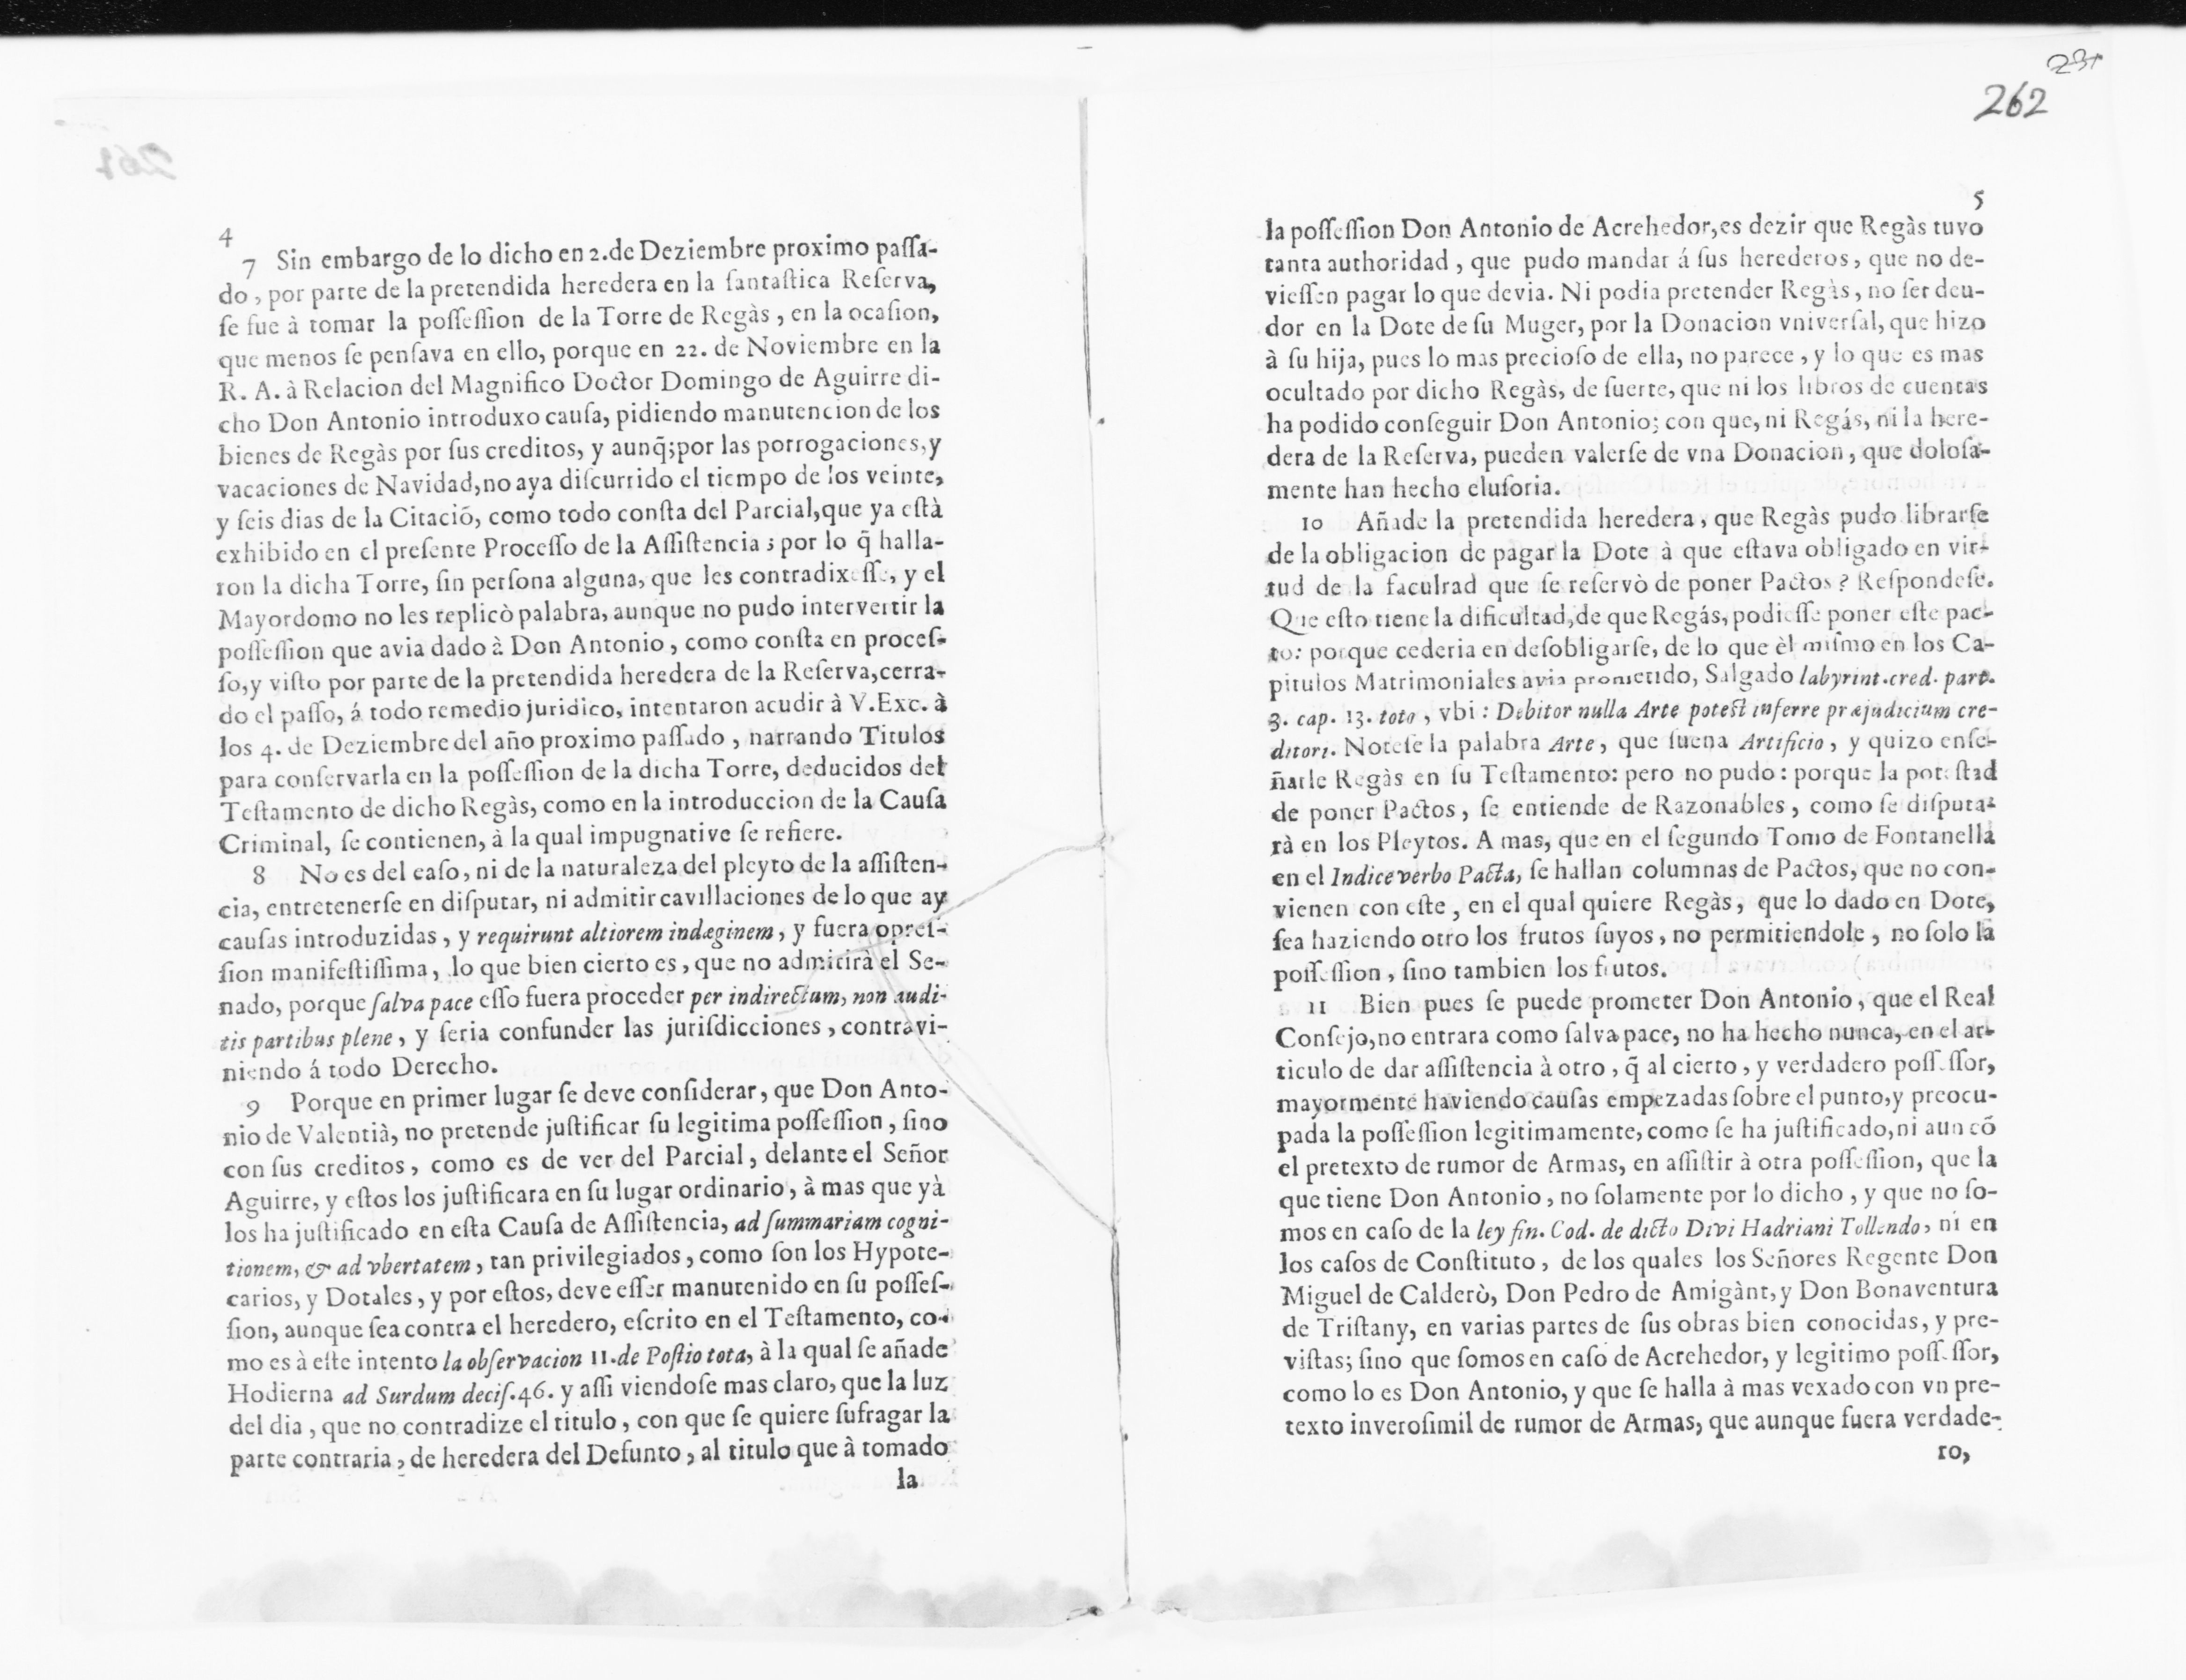 4
7 Sin embargo de lo dicho en 2.de Deziembre proximo paſſa-
do, por parte de la pretendida heredera en la fantaſtica Reſerva,
ſe fue à tomar la poſſeſſion de la Torre de Regàs, en la ocaſion,
que menos ſe penſava en ello, porque en 22. de Noviembre en la
R. A. à Relacion del Magnifico Doctor Domingo de Aguirre di-
cho Don Antonio introduxo cauſa, pidiendo manutencion de los
bienes de Regàs por ſus creditos, y aunq̃;por las porrogaciones,y
vacaciones de Navidad,no aya diſcurrido el tiempo de los veinte,
y ſeis dias de la Citaciõ, como todo conſta del Parcial,que ya eſtà
exhibido en el preſente Proceſſo de la Aſſiſtencia; por lo q̃ halla-
ron la dicha Torre, ſin perſona alguna, que les contradixeſſe, y el
Mayordomo no les replicò palabra, aunque no pudo intervertir la
poſſeſſion que avia dado à Don Antonio, como conſta en proceſ-
ſo,y viſto por parte de la pretendida heredera de la Reſerva,cerra-
do el paſſo, á todo remedio juridico, intentaron acudir à V.Exc. à
los 4. de Deziembre del año proximo paſſado, narrando Titulos
para conſervarla en la poſſeſſion de la dicha Torre, deducidos del
Teſtamento de dicho Regàs, como en la introduccion de la Cauſa
Criminal, ſe contienen, à la qual impugnative ſe refiere.
8 No es del caſo, ni de la naturaleza del pleyto de la aſſiſten-
cia, entretenerſe en diſputar, ni admitir cavillaciones de lo que ay
cauſas introduzidas, y requirunt altiorem indæginem, y fuera opreſ-
ſion manifeſtiſſima, lo que bien cierto es, que no admitirà el Se-
nado, porque ſalva pace eſſo fuera proceder per indirectum, non audi-
tis partibus plene, y ſeria confunder las juriſdicciones, contravi-
niendo á todo Derecho.
9 Porque en primer lugar ſe deve conſiderar, que Don Anto-
nio de Valentià, no pretende juſtificar ſu legitima poſſeſſion, ſino
con ſus creditos, como es de ver del Parcial, delante el Señor
Aguirre, y eſtos los juſtificara en ſu lugar ordinario, à mas que yà
los ha juſtificado en eſta Cauſa de Aſſiſtencia, ad ſummariam cogni-
tionem, & ad vbertatem, tan privilegiados, como ſon los Hypote-
carios, y Dotales, y por eſtos, deve eſſer manutenido en ſu poſſeſ-
ſion, aunque ſea contra el heredero, eſcrito en el Teſtamento, co-
mo es à eſte intento la obſervacion 11.de Poſtio tota, à la qual ſe añade
Hodierna ad Surdum deciſ.46. y aſſi viendoſe mas claro, que la luz
del dia, que no contradize el titulo, con que ſe quiere ſufragar la
parte contraria, de heredera del Defunto, al titulo que à tomado
la
262
5
la poſſeſſion Don Antonio de Acrehedor,es dezir que Regàs tuvo
tanta authoridad, que pudo mandar á ſus herederos, que no de-
vieſſen pagar lo que devia. Ni podia pretender Regàs, no ſer deu-
dor en la Dote de ſu Muger, por la Donacion vniverſal, que hizo
à ſu hija, pues lo mas precioſo de ella, no parece, y lo que es mas
ocultado por dicho Regàs, de ſuerte, que ni los libros de cuentas
ha podido conſeguir Don Antonio; con que, ni Regás, ni la here-
dera de la Reſerva, pueden valerſe de vna Donacion, que doloſa-
mente han hecho eluſoria.
10 Añade la pretendida heredera, que Regàs pudo librarſe
de la obligacion de pagar la Dote à que eſtava obligado en vir-
tud de la faculrad que ſe reſervò de poner Pactos? Reſpondeſe.
Que eſto tiene la dificultad,de que Regás, podieſſe poner eſte pac-
to: porque cederia en deſobligarſe, de lo que èl miſmo en los Ca-
pitulos Matrimoniales avia prometido, Salgado labyrint.cred. part.
3. cap. 13. toto, vbi: Debitor nulla Arte poteſt inferre præjudicium cre-
ditori. Noteſe la palabra Arte, que ſuena Artificio, y quizo enſe-
ñarle Regàs en ſu Teſtamento: pero no pudo: porque la poteſtad
de poner Pactos, ſe entiende de Razonables, como ſe diſputa-
rà en los Pleytos. A mas, que en el ſegundo Tomo de Fontanella
en el Indice verbo Pacta, ſe hallan columnas de Pactos, que no con-
vienen con eſte, en el qual quiere Regàs, que lo dado en Dote,
ſea haziendo otro los frutos ſuyos, no permitiendole, no ſolo la
poſſeſſion, ſino tambien los frutos.
11 Bien pues ſe puede prometer Don Antonio, que el Real
Conſejo,no entrara como ſalva pace, no ha hecho nunca, en el ar-
ticulo de dar aſſiſtencia à otro, q̃ al cierto, y verdadero poſſeſſor,
mayormente haviendo cauſas empezadas ſobre el punto,y preocu-
pada la poſſeſſion legitimamente, como ſe ha juſtificado,ni aun cõ
el pretexto de rumor de Armas, en aſſiſtir à otra poſſeſſion, que la
que tiene Don Antonio, no ſolamente por lo dicho, y que no ſo-
mos en caſo de la ley fin. Cod. de dicto Divi Hadriani Tollendo, ni en
los caſos de Conſtituto, de los quales los Señores Regente Don
Miguel de Calderò, Don Pedro de Amigànt,y Don Bonaventura
de Triſtany, en varias partes de ſus obras bien conocidas, y pre-
viſtas; ſino que ſomos en caſo de Acrehedor, y legitimo poſſeſſor,
como lo es Don Antonio, y que ſe halla à mas vexado con vn pre-
texto inveroſimil de rumor de Armas, que aunque fuera verdade-
ro,